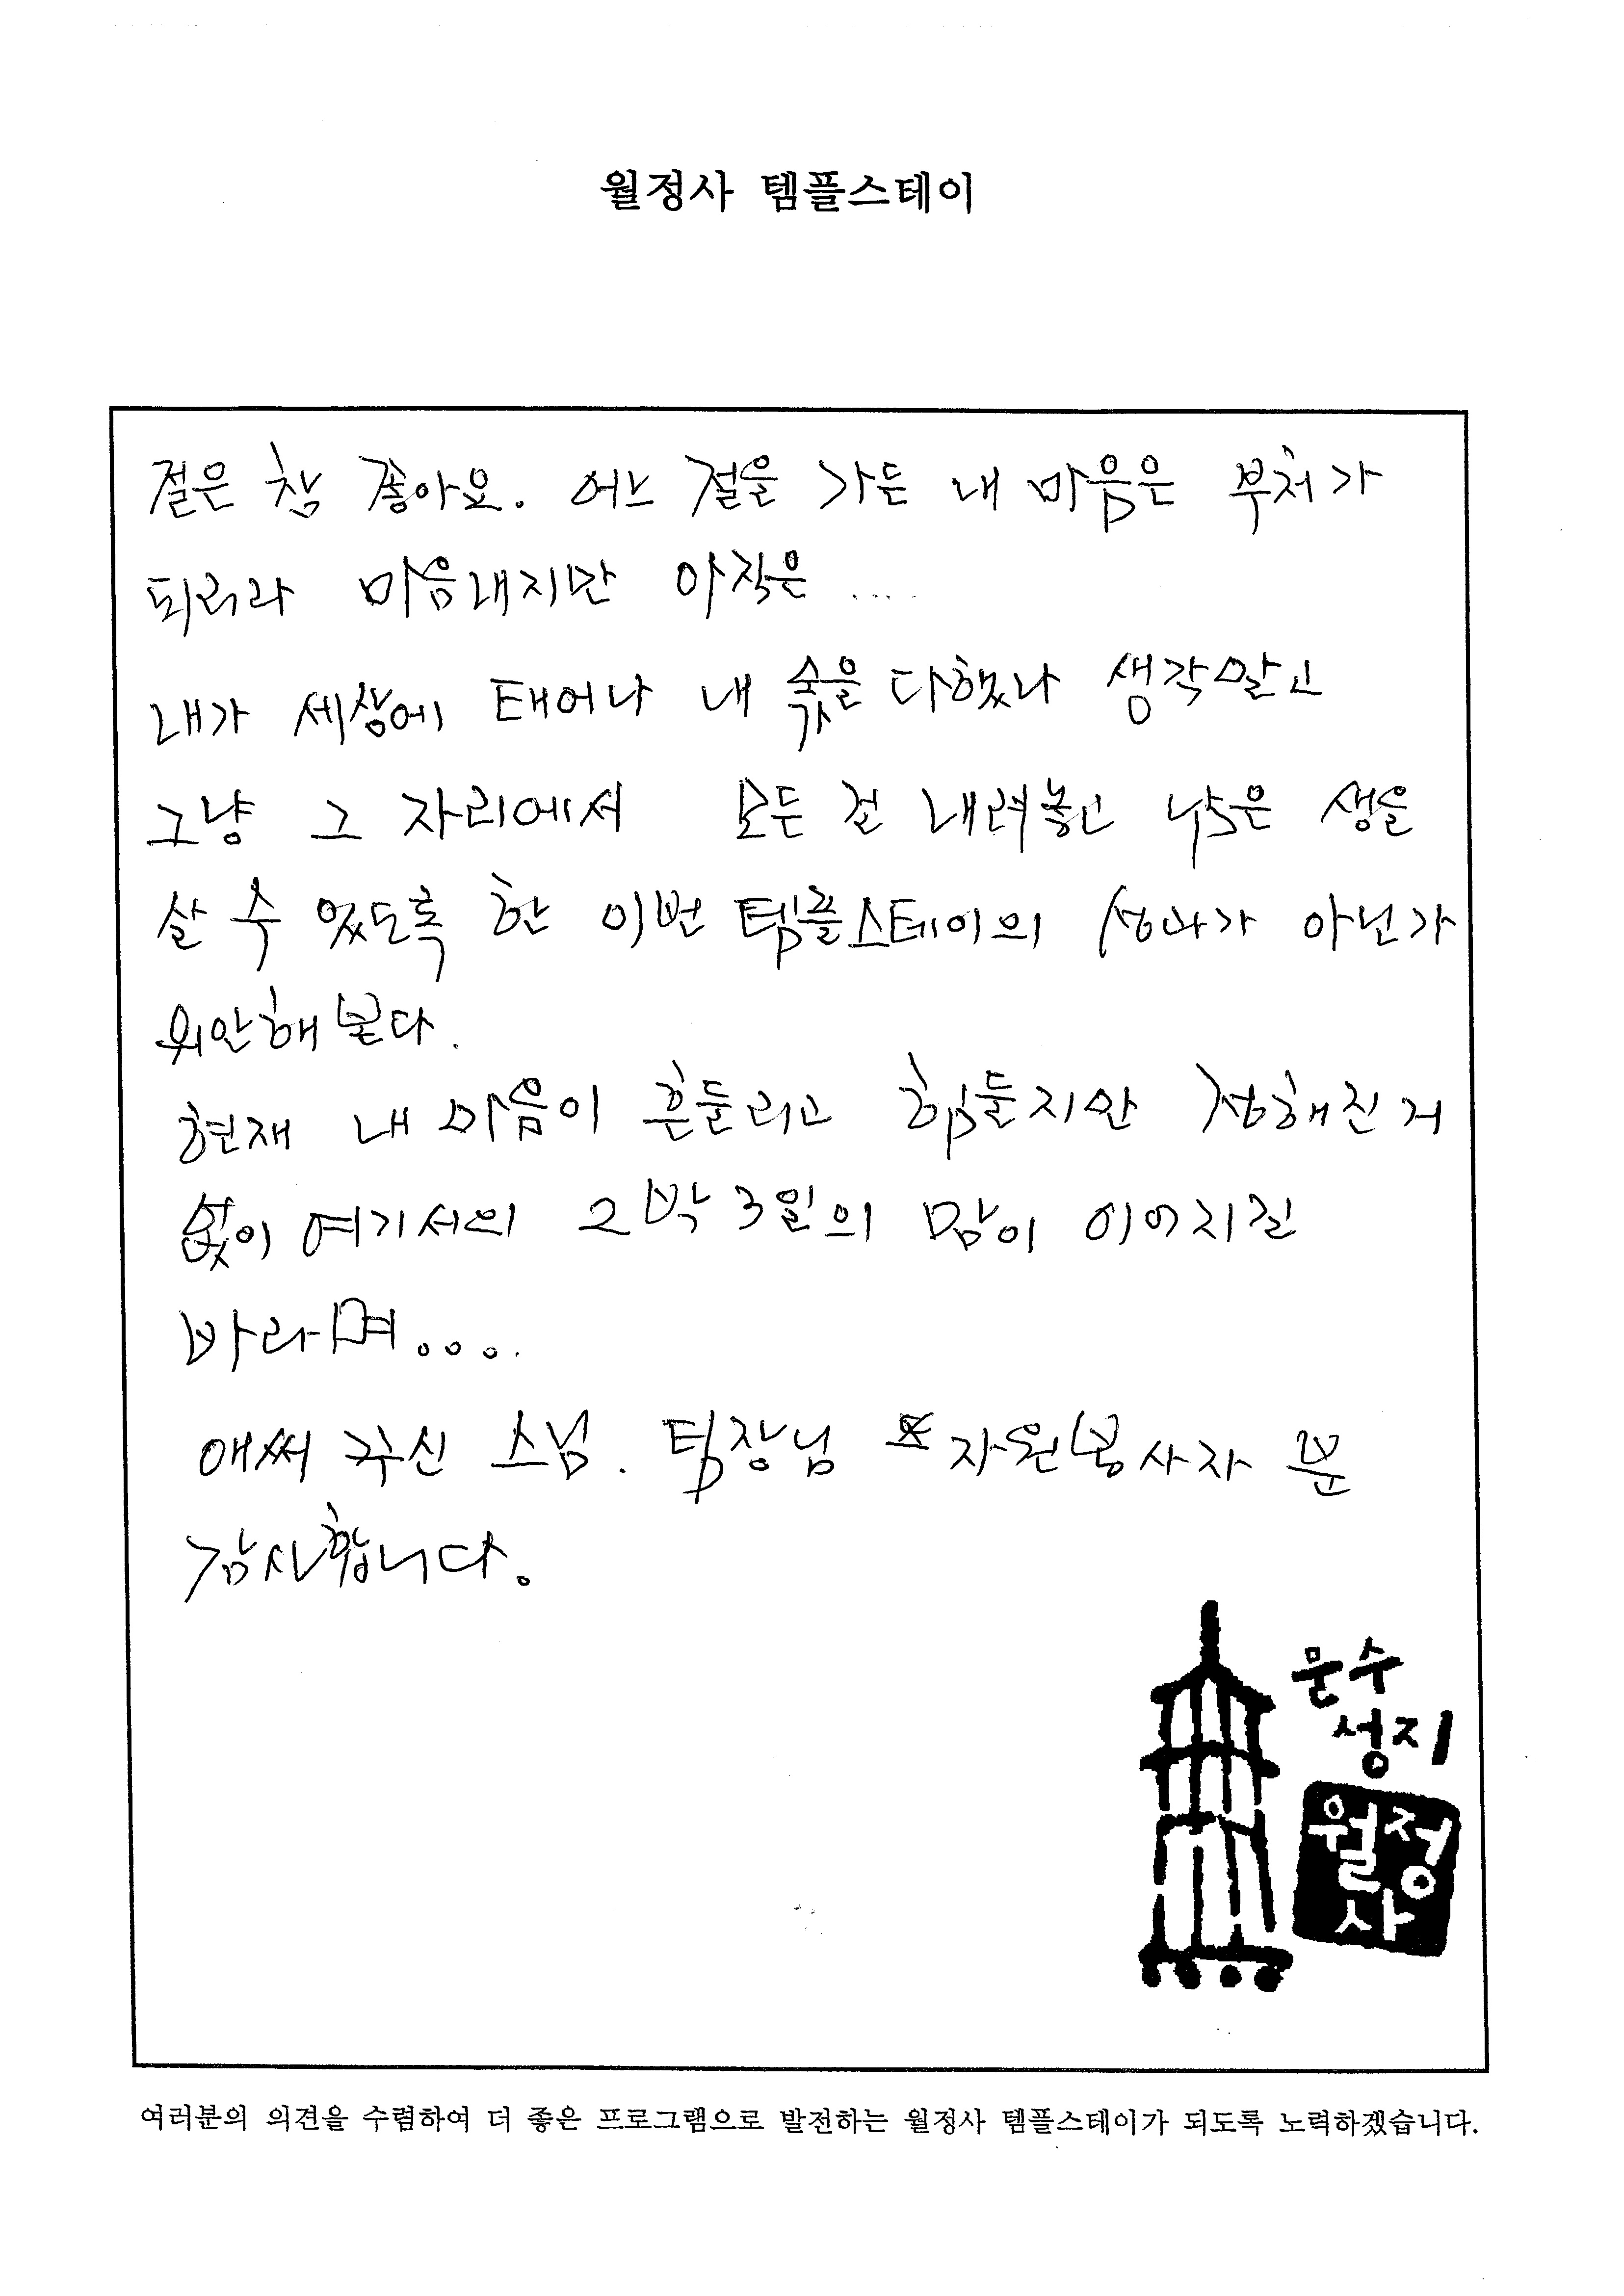 월정사 템플스테이
절은 참 좋아요. 어느 절을 가든 내 마음은 부처가
되리라 마음내지만 아직은 ....
내가 세상에 태어나 내 몫을 다했나 생각말고
그냥 그 자리에서 모든 걸 내려놓고 남은 생을
살 수 있도록 한 이번 템플스테이의 성과가 아닌가
위안해 본다.
현재 내 마음이 흔들리고 힘들지만 정해진 거
없이 여기서의 2박3일의 맘이 이어지길
바라며....
애써 주신 스님. 팀장님 자원봉사자 분
감사합니다.
문수
성지
월정
사
여러분의 의견을 수렴하여 더 좋은 프로그램으로 발전하는 월정사 템플스테이가 되도록 노력하겠습니다.